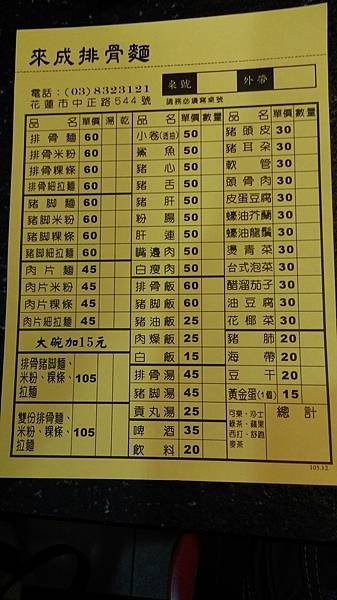 來成排骨麵
電話：(03)8323121
花蓮市中正路544號
桌號 外帶
請務必填寫桌號
品名 單價 湯 乾
排骨麵 60
排骨米粉 60
排骨粿條 60
排骨細拉麵 60
豬腳麵 60
豬腳米粉 60
豬腳粿條 60
豬腳細拉麵 60
肉片麵 45
肉片米粉 45
肉片粿條 45
肉片細拉麵 45
大碗加15元
排骨豬腳麵、
米粉、粿條、 105
拉麵
雙份排骨麵、
米粉、粿條、 105
拉麵
品名 單價 數量
小卷(透抽) 50
鯊魚 50
豬心 50
豬舌 50
豬肝 50
粉腸 50
肝連 50
嘴邊肉 50
白瘦肉 50
排骨飯 60
豬腳飯 60
豬油飯 25
肉燥飯 25
白飯 15
排骨湯 45
豬腳湯 45
貢丸湯 25
啤酒 35
飲料 20
品名 單價 數量
豬頭皮 30
豬耳朵 30
軟管 30
頭骨肉 30
皮蛋豆腐 30
蠔油芥蘭 30
蠔油龍鬚 30
燙青菜 30
台式泡菜 30
醋溜茄子 30
油豆腐 30
花椰菜 30
豬肺 20
海帶 20
豆干 20
黃金蛋(1個) 15
可樂、沙士
綠茶、蘋果
西打、舒跑
麥茶
總計
105.12